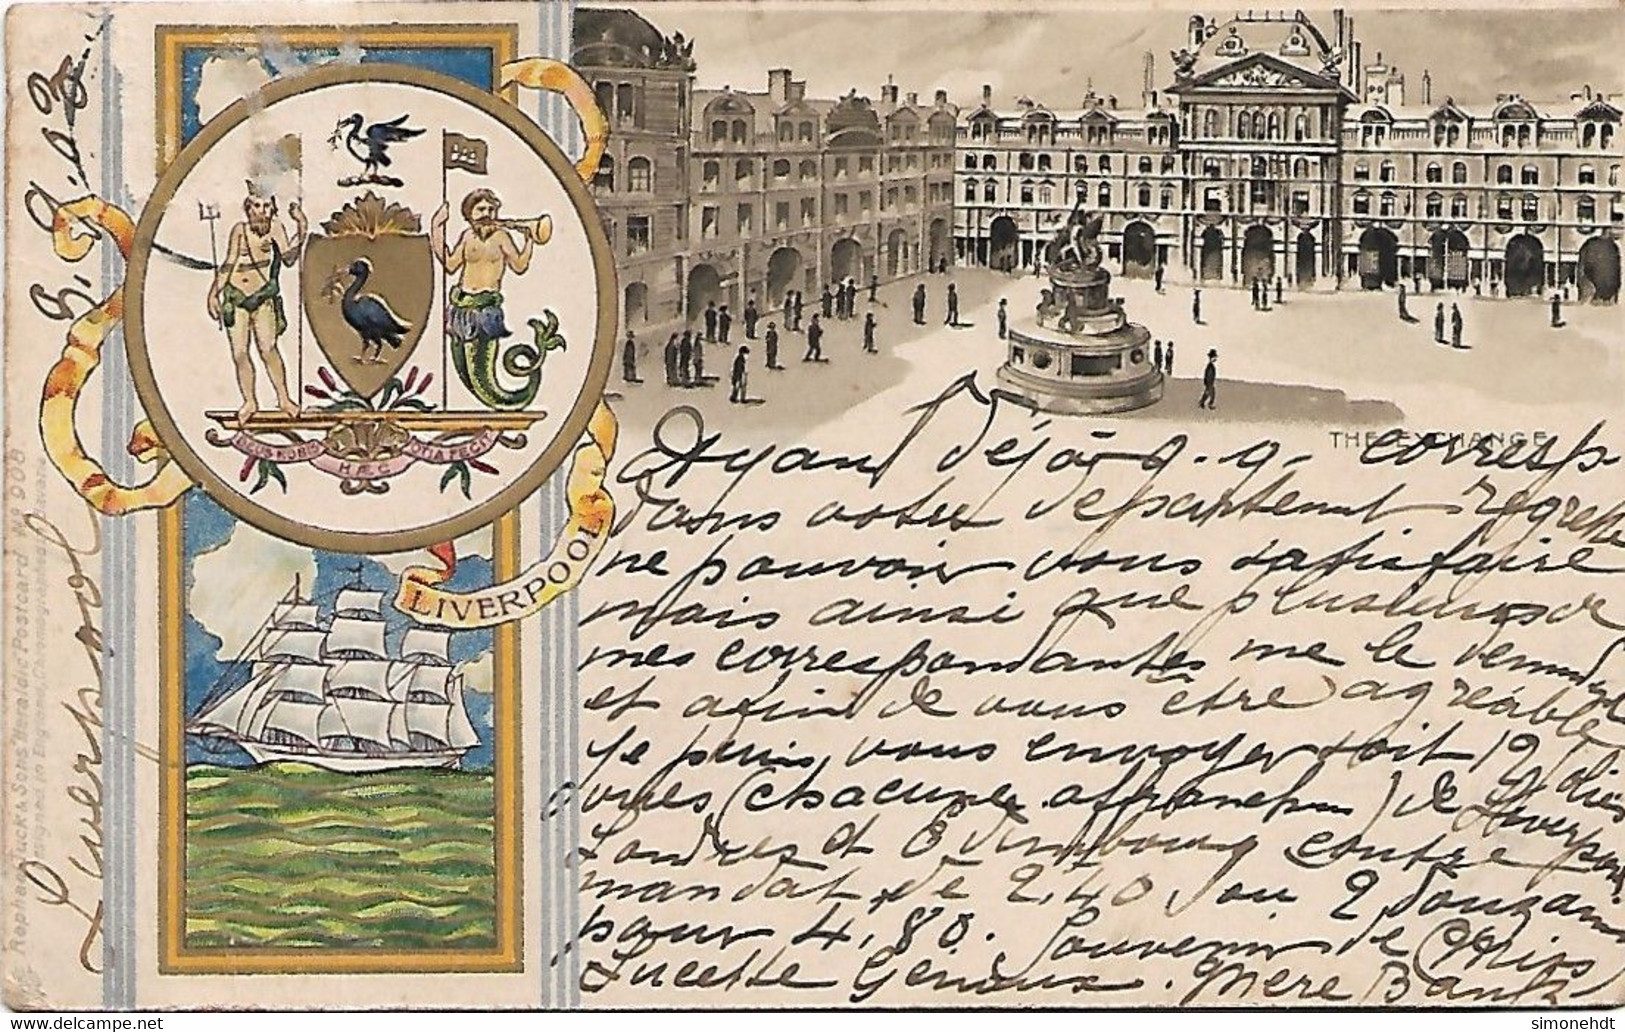 THE EXCHANGE
DEUS NOBIS HÆC OTIA FECIT
LIVERPOOL
Raphael Tuck & Sons' Heraldic Postcard Nº 908.
Designed in England, Chromographed in Bavaria.
Liverpool
Ayant Déjà q. q. corresp
dans votre departement regrette
ne pouvoir vous satisfaire
mais ainsi que plusieurs de
mes correspondantes me le
et afin de vous être agréable
je puis vous envoyer soit 12
vues (chacune affranchie) de Liverpool
Londres et Edimbourg contre
mandat de 2,40 ou 2 Douzaines
pour 4,80. Souvenir de Miss
Lucette Genioux. Mere Bank
simonehdt